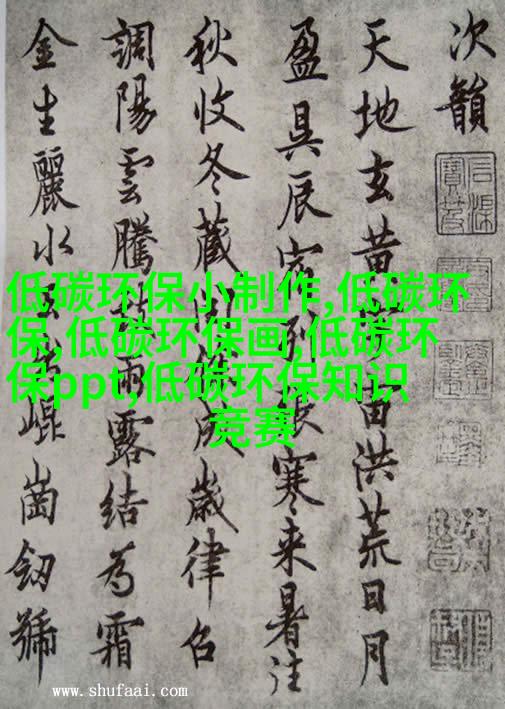 次韻
天地玄黄宙洪荒日月
盈昃辰宿列張寒来暑往
秋收冬藏成歲律召
調陽雲騰雨露結為霜
金生麗水玉崐崗劒號
低碳环保小制作,低碳环
保,低碳环保画,低碳环
保ppt,低碳环保知识
竞赛
www.shufaai.com